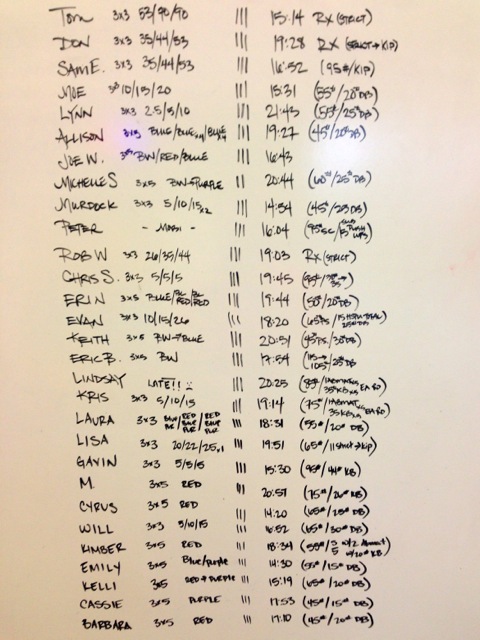 Tom 3x3 53/70/90 ||| 15:14 Rx (STRICT)
DON 3x3 35/44/53 ||| 19:28 RX (STRICT→KIP)
SAM E. 3x3 35/44/53 ||| 16:52 (95#/KIP)
MOE 10/15/20 ||| 15:31 (55#/20#DB)
LYNN 3x3 2.5/5/10 ||| 21:43 (55#/25#DB)
ALLISON 3x3 BLUE/BLUE ||| 19:27 (45#/20#DB)
JOE W. BW/RED/BLUE ||| 16:43
MICHELLE S 3x5 BW+PURPLE ||| 20:44 (60#/25#DB)
MURDOCK 3x3 5/10/15 x2 ||| 14:54 (45#/25DB)
PETER - MOSH - ||| 16:04
ROB W 3x3 26/35/44 ||| 19:03 Rx (STRICT)
CHRIS S. 3x3 5/5/5 ||| 19:45
ERIN 3x5 BLUE/ BL RED/ BL RED ||| 19:44 (50#/20#DB)
EVAN 3x3 10/15/26 ||| 18:20
KEITH 3x5 BW→BLUE ||| 20:51
ERIC B. 3x5 BW ||| 17:54
LINDSAY LATE!! ||| 20:25
KRIS 3x3 5/10/15 ||| 19:14
LAURA 3x3 ||| 18:31 (55#/20#DB)
LISA 3x3 20/22/25 ||| 19:51
GAVIN 3x3 5/5/5 ||| 15:30
M. 3x5 RED ||| 20:57
CYRUS 3x5 RED ||| 14:20 (65#/25#DB)
WILL 3x3 5/10/15 ||| 16:52 (65#/30#DB)
KIMBER 3x5 RED ||| 18:34
EMILY 3x5 Blue/purple ||| 14:30 (55#/15#DB)
KELLI 3x5 RED+PURPLE ||| 15:19 (65#/20#DB)
CASSIE 3x5 PURPLE ||| 17:53 (45#/15#DB)
BARBARA 3x5 RED ||| 17:10 (45#/20#DB)